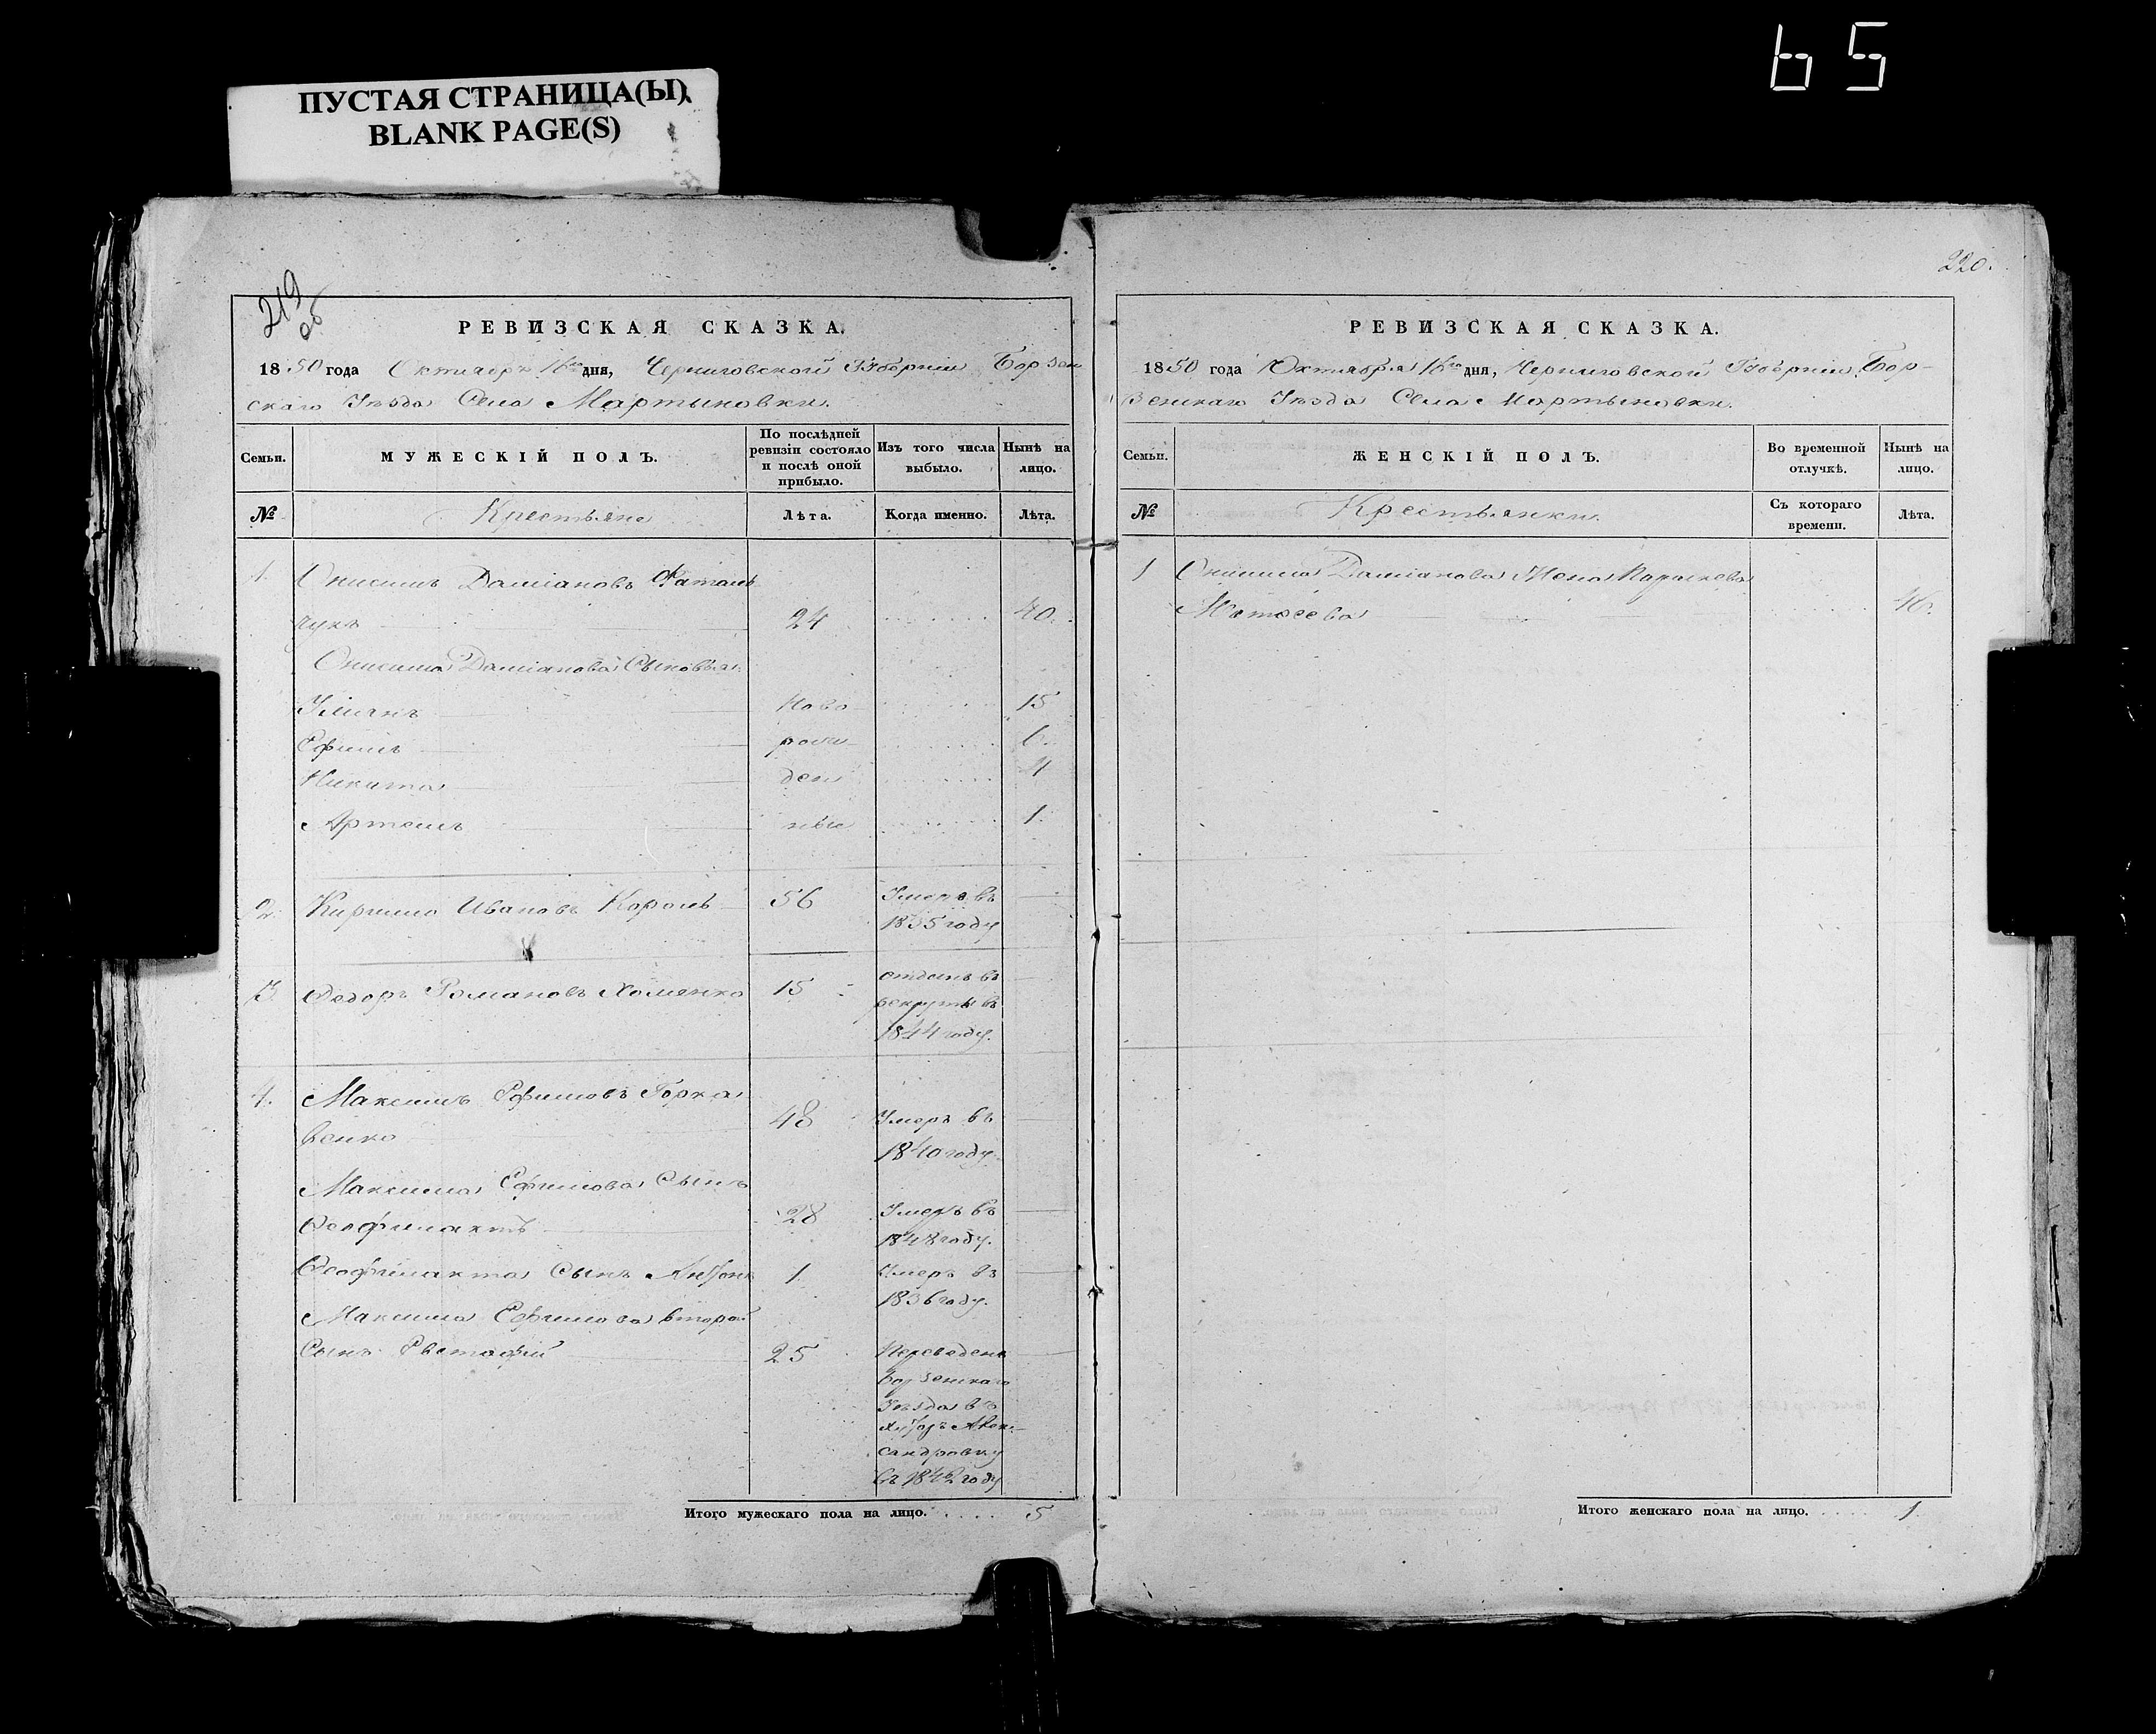 65
ПУСТАЯ СТРАНИЦА(Ы)
BLANK PAGE(S)
219
об
РЕВИЗСКАЯ СКАЗКА.
1850 года Октября 16го дня, Черниговской Губерніи Борзен
скаго Уезда Села Мартыновки.
Семьи.
МУЖЕСКІЙ ПОЛЪ.
По послѣдней ревизіи состояло и послѣ оной прибыло.
Изъ того числа выбыло.
Нынѣ на лицо.
№
Крестьяне
Лѣта.
Когда именно.
Лѣта.
1. Онисимъ Даміановъ
чукъ 24 40.
Онисима Даміанова Сыновья:
Уліянъ ново 15
Ефимъ рож 6.
Никита ден 4
Артемъ ные 1.
2. Кирило Ивановъ Король 56 Умеръ въ
1835 году
3. Федоръ Романовъ Хоменко 15 отданъ въ
рекруты въ
1844 году.
4. Максимъ Ефимовъ Горка
венко 48 Умеръ въ
1840 году.
Максима Ефимова Сынъ
Феофилактъ 28 Умеръ въ
1848 году.
Феофилакта Сынъ 1. Умеръ въ
1836 году.
Максима Ефимова второй
Сынъ Евстафій 25 Переведенъ
Борзенскаго
Уезда въ
Хуторъ Алек-
сандровку
въ 1842 году
Итого мужескаго пола на лицо. . . . . 5
220.
РЕВИЗСКАЯ СКАЗКА.
1850 года Октября 16го дня, Черниговской Губерніи Бор-
зенскаго Уезда Села Мартыновки.
Семьи.
ЖЕНСКІЙ ПОЛЪ.
Во временной отлучкѣ.
Нынѣ на лицо.
№
Крестьянки.
Съ котораго времени.
Лѣта.
1 Онисима Даміанова Жена Параскева
Матвеева 40.
Итого женскаго пола на лицо. . . . . 1